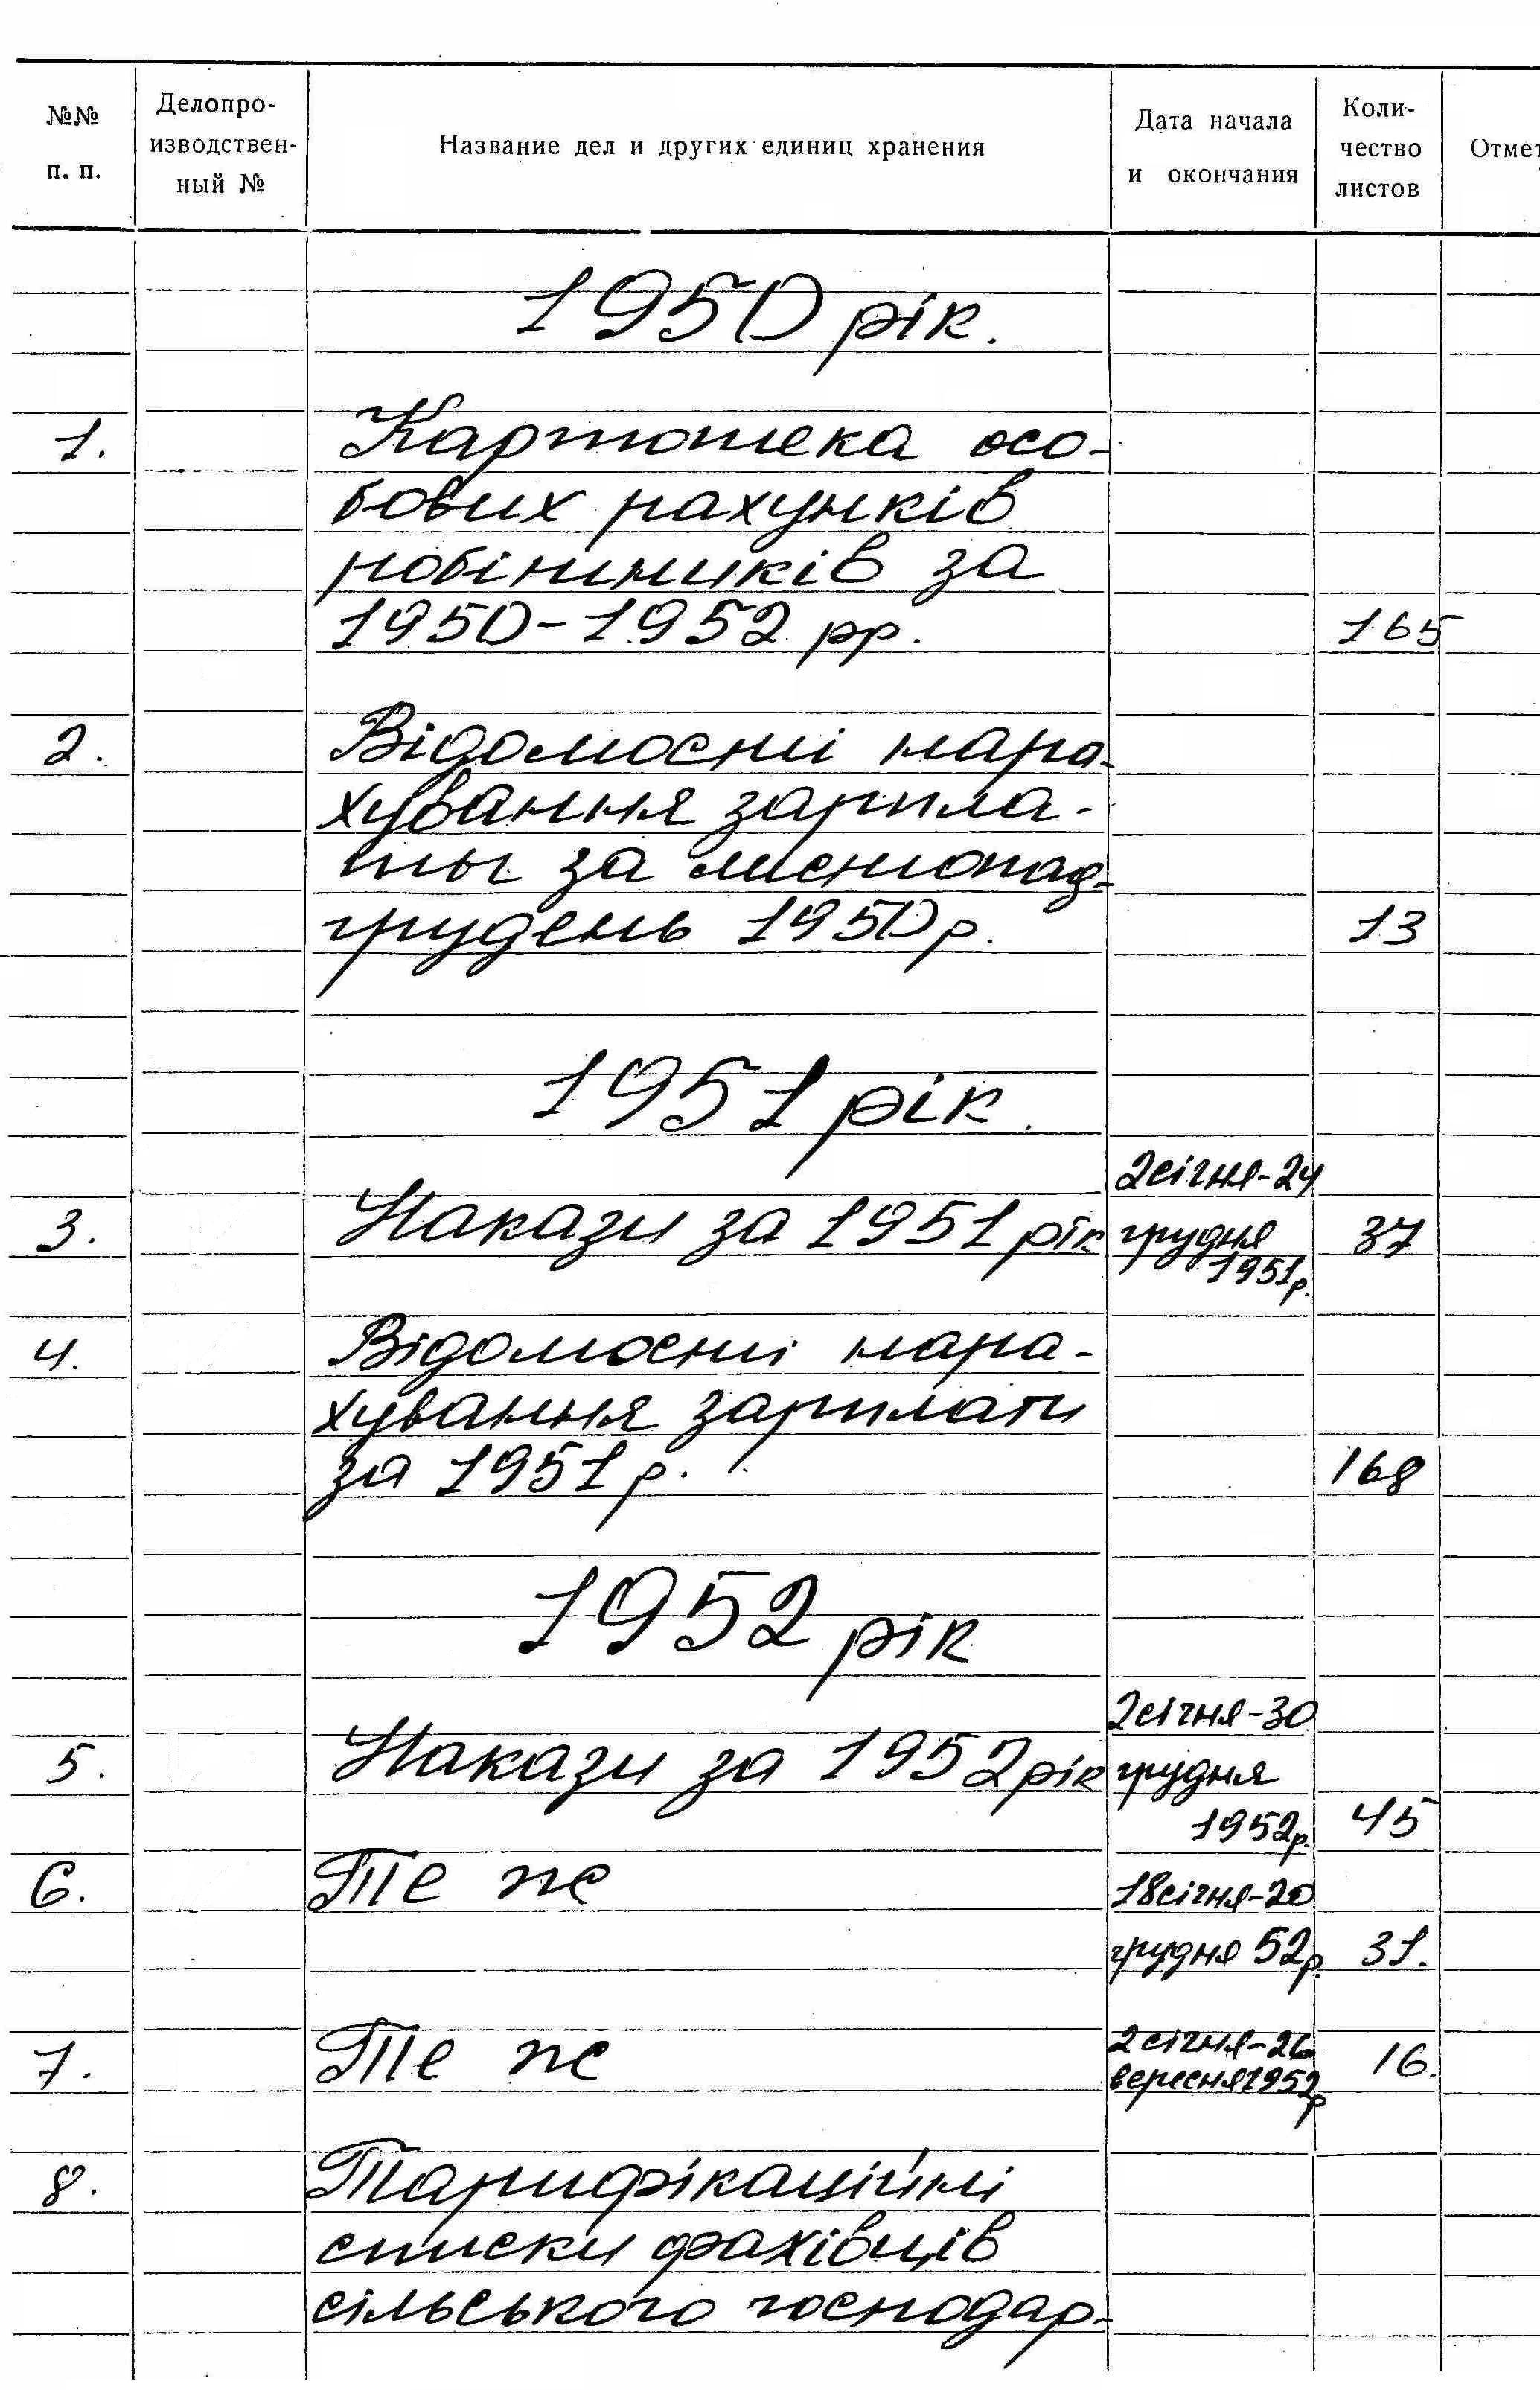 №№ п. п.
Делопро-
изводствен-
ный №
Название дел и других единиц хранения
Дата начала
и окончания
Коли-
чество
листов
Отмет
1950 рік.
1. Картотека осо-
бових рахунків
робітників за
1950-1952 рр. 165
2. Відомості нара-
хування зарпла-
ты за листопад-
грудень 1950р. 13
1951 рік.
2 січня-24
3. Накази за 1951 рік грудня 37
1951р.
4. Відомості нара-
хування зарплати
за 1951 р. 168
1952 рік
2 січня-30
5. Накази за 1952 рік грудня
1952р. 45
6. Те же 18 січня-20
грудня 52р. 31.
7. Те же 2 січня-26 16.
вересня 1952р
8. Тарифікаційні
списки фахівців
сільського господар-